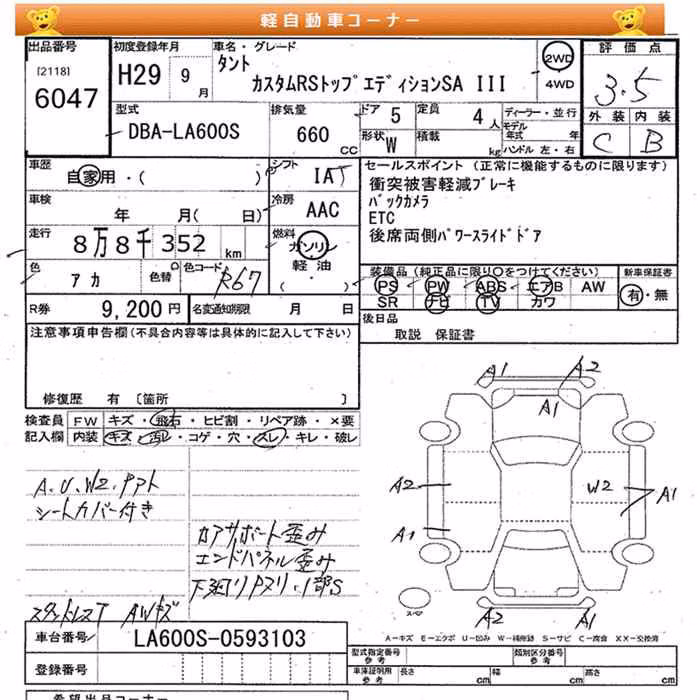 軽自動車コーナー
出品番号
[2118]
6047
初度登録年月
H29 9月
車名・グレード
タント
カスタムRSトップエディションSA III
2WD
4WD
評価点
3.5
外装 内装
C B
型式
DBA-LA600S
排気量
660 CC
ドア 5
定員 4人
形状 W
積載 kg
ディーラー・並行
モデル年式 年
ハンドル 左・右
車歴
自家用・( )
シフト
IAT
車検
年 月( 日)
冷房
AAC
走行
8万8千352 km
燃料
ガソリン
軽油
( )
色
アカ
色替
色コード
R67
セールスポイント (正常に機能するものに限ります)
衝突被害軽減ブレーキ
バックカメラ
ETC
後席両側パワースライドドア
装備品 (純正品に限り○をつけてください)
PS PW ABS エアB AW
SR ナビ TV カワ
新車保証書
有・無
R券 9,200円
名変通知期限 月 日
後日品
取説 保証書
注意事項申告欄 (不具合内容等は具体的に記入して下さい)
修復歴 有 [箇所 ]
検査員記入欄
FW キズ・飛石・ヒビ割・リペア跡・×要
内装 キズ・汚レ・コゲ・穴・スレ・キレ・破レ
A.U.W2.アト
シートカバー付き
コアサポート歪み
エンドパネル歪み
下廻りサビ.1部S
スタッドレスT AWキズ
A1 A2
A1
A2 W2 A1
A1
A2 A1
スペア
A-キズ E-エクボ U-凹み W-補修跡 S-サビ C-腐食 XX-交換済
車台番号 LA600S-0593103
登録番号
型式指定番号
参考
類別区分番号
参考
車庫証明用
参考
長さ cm 幅 cm 高さ cm
希望出品コーナー